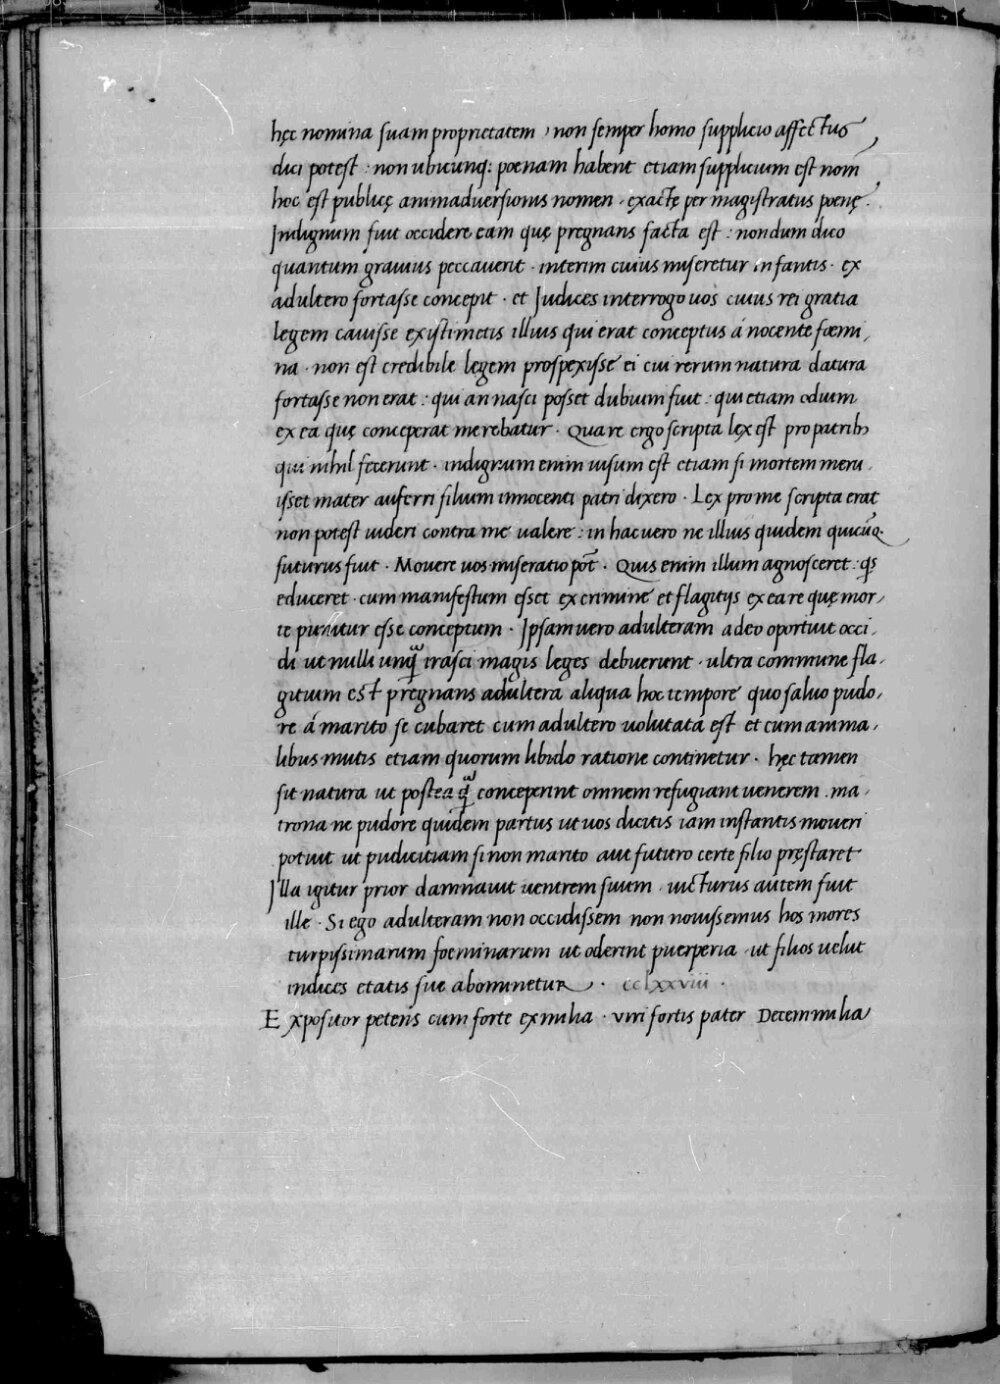 hęc nomina suam proprietatem , non semper homo supplicio affectus
dici potest : non ubicunq; poenam habent etiam supplicium est nom̄
hoc est publicę animadversionis nomen . exactę per magistratus poenę .
Indignum fuit occidere eam quę pregnans facta est : nondum dico
quantum gravius peccaverit . interim cuius miseretur infantis . ex
adultero fortasse concepit . et Judices interrogo uos cuius rei gratia
legem cauisse existimetis illius qui erat conceptus á nocente foemi,
na . non est credibile legem prospexisse ei cui rerum natura datura
fortasse non erat : qui an nasci posset dubium fuit : qui etiam odium
ex ea quę conceperat merebatur . Quare ergo scripta lex est pro patrib;
qui nihil fecerunt . indignum enim uisum est etiam si mortem meru,
isset mater auferri filium innocenti patri dixero . Lex pro me scripta erat
non potest uideri contra me ualere : in hac uero ne illius quidem quicūq.
futurus fuit . Movere uos miseratio pōt . Quis enim illum agnosceret : q̇s
educeret . cum manifestum esset ex crimine et flagitijs ex ea re quę mor,
te punitur esse conceptum . Ipsam uero adulteram adeo oportuit occi,
di ut nulli unq̃ irasci magis leges debuerunt . ultra commune fla,
gitium est pregnans adultera aliqua hoc tempore quo saluo pudo,
re á marito se cubaret cum adultero uolutata est et cum anima,
libus mutis etiam quorum libido ratione continetur . hęc tamen
sit natura ut postea q̃ conceperint omnem refugiant uenerem . ma,
trona ne pudore quidem partus ut uos dicitis iam instantis moueri
potuit ut pudicitiam si non marito aut futuro certe filio pręstaret
Illa igitur prior damnauit uentrem suum . uicturus autem fuit
ille . Si ego adulteram non occidissem non nouissemus hos mores
turpissimarum foeminarum ut oderint puerperia . ut filios uelut
indices etatis sue abominetur . cclxxviii .
Expositor petens cum forte ex milia . viri fortis pater Decem milia